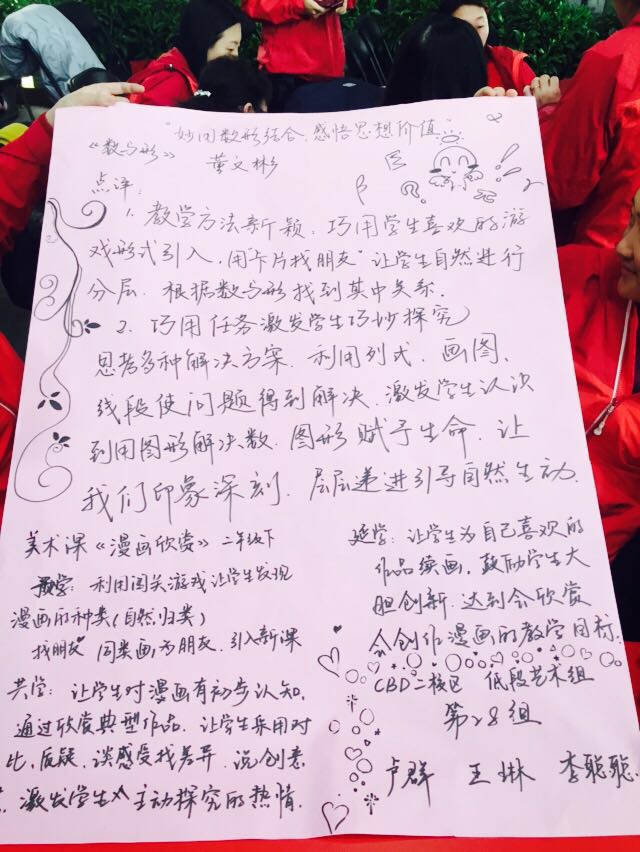 "妙用数形结合,感悟思想价值"
《数与形》 董文彬
点评:
1. 教学方法新颖:巧用学生喜欢的游
戏形式引入,用"卡片找朋友"让学生自然进行
分层.根据数与形找到其中关系.
2. 巧用任务激发学生巧妙探究
思考多种解决方案.利用列式、画图、
线段使问题得到解决.激发学生认识
到用图形解决数.图形赋予生命.让
我们印象深刻.层层递进引导自然生动.
美术课《漫画欣赏》二年级下
教学:利用闯关游戏让学生发现
漫画的种类(自然归类)
找朋友" 同类画为朋友.引入新课
共学:让学生对漫画有初步认知,
通过欣赏典型作品.让学生采用对
比,质疑,谈感受找差异.说创意
激发学生主动探究的热情.
延学:让学生为自己喜欢的
作品续画,鼓励学生大
胆创新.达到会欣赏
会创作漫画的教学目标.
CBD二核区 低段艺术组
第28组
卢群 王琳 李聪聪